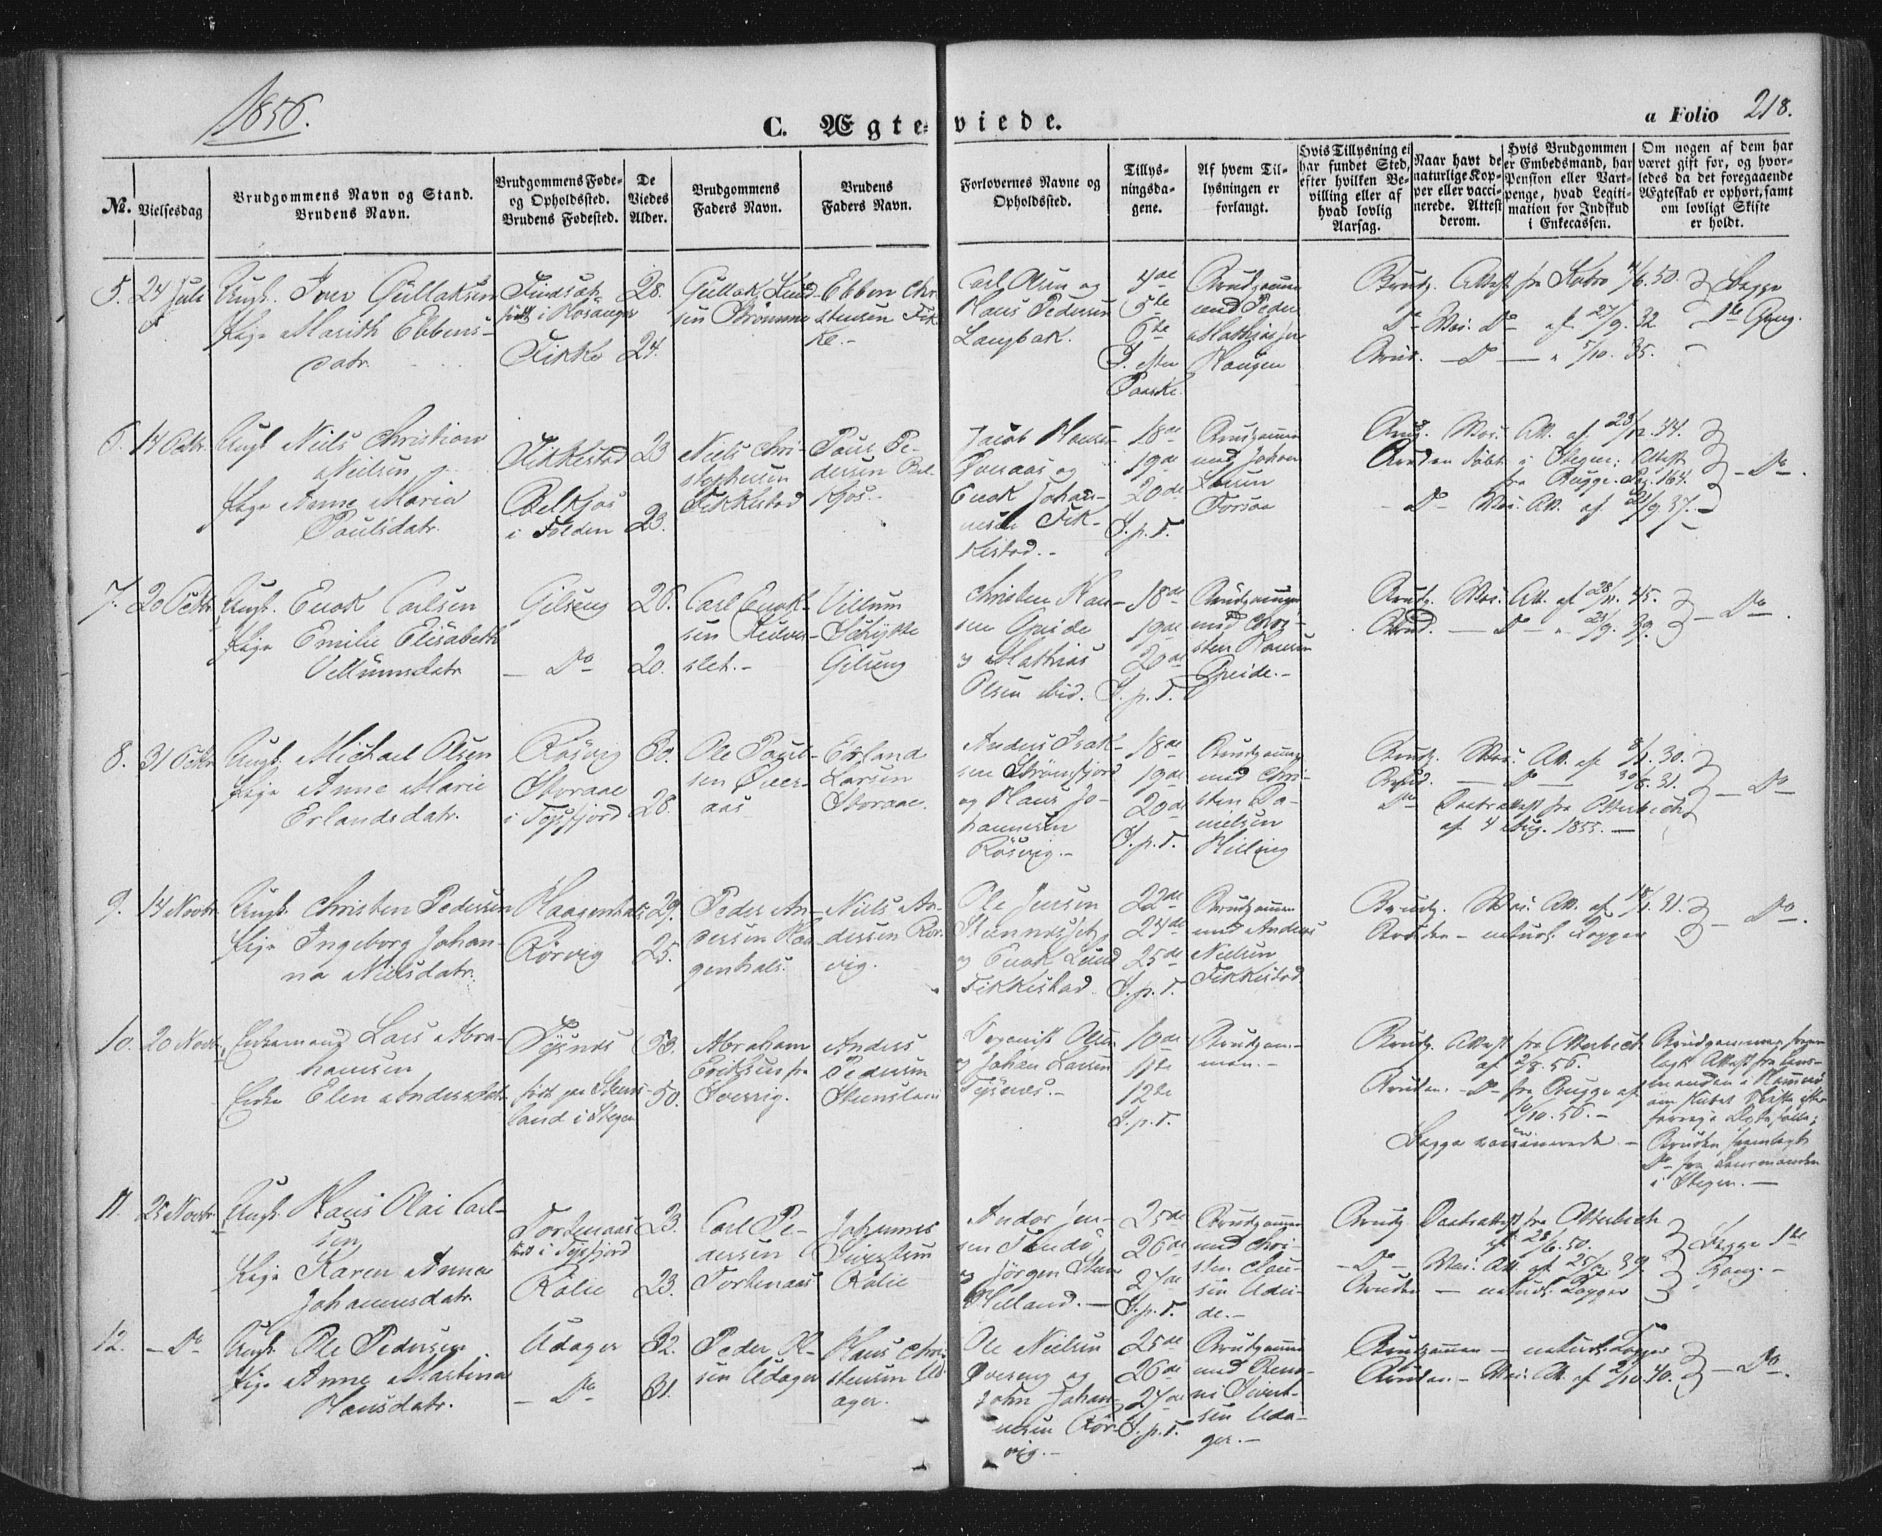 1856.
C. Ægteviede.
a Folio 218.
No.
Vielsesdag
Brudgommens Navn og Stand.
Brudens Navn.
Brudgommens Føde-
og Opholdssted.
Brudens Fødested.
De
Viedes
Alder.
Brudgommens
Faders Navn.
Brudens
Faders Navn.
Forlovernes Navne og
Opholdssted.
Tillys-
ningsda-
gene.
Af hvem Til-
lysningen er
forlangt.
Hvis Tillysning ei
har fundet Sted,
efter hvilken Be-
villing eller af
hvad lovlig
Aarsag.
Naar havt de
naturlige Kop-
per eller vacci-
nerede. Attest
derom.
Hvis Brudgommen
er Embedsmand, har
Pension eller Vart-
penge, hvad Legiti-
mation for Indskud
i Enkecassen.
Om nogen af dem har
været gift for, og hvor-
ledes da det foregaaende
Ægteskab er ophørt, samt
om lovligt Skifte
er holdt.
5. 24 Juli
Ungk. Iver Gullaksen
Pige Marith Ebbens-
datr.
født i Hosanger
Fikke
28.
24.
Gullak Knud-
sen Strømme
Ebben Chri-
stensen Fik-
ke.-
Carl Olsen og
Hans Pedersen
Langbak.
4de
5te
6te
S. efter
Paaske.
Brudgommen
med Peder
Mathias
Haugen
Brudg. Attest fra 50.
Do Vac. Do af 27/9. 32
Brud. - Do - " 5/10. 35.
Begge
1ste Gang.
6. 14 Octbr.
Ungk. Niels Christian
Nielsen
Pige Anne Maria
Paulsdatr.
Fikkestad
i Folden
23
23.
Niels Chri-
stophersen
Fikkestad
Paul Pe-
dersen
Jacob Hansen
Øveraas og
Enok Johan-
nesen Fik-
kestad.-
18de
19de
20de
S. p. T.
Brudgommen
med Johan
Brudg. Vac. Att. af 34.
Bruden født i Stegen; Attest
fra Bugge.
- Do - Vac. Att. af 21/9 37.-
- Do.
7. 20 Octbr.
Ungk. Enok Carlsen
Pige Emilie Elisabeth
Vellumsdatr.
Gilseng
- Do
26.
20.
Carl Enok-
sen
slet.-
Villum
Schytte
Gilseng
Christen Han-
sen Greide
og Mathias
Olsen ibid.
18de
19de
20de
S. p. T.
Brudgommen
med Chri-
sten Hansen
Greide.-
Brudg. Vac. Att. af 28/11. 45.
Brud. - Do - " 21/9. 39.
- Do.
8. 31 Octbr.
Ungk. Michael Olsen
Pige Anne Marie
Erlandsdatr.
Røsvig
Storaae
i Tysfjord
30.
28.
Ole Paul-
sen Øver-
aas
Erland
Larsen
Storaae.
Anders Isak-
sen Strømfjord
og Hans Jo-
hannesen
Røsvig.-
18de
19de
20de
S. p. T.
Brudgommen
med Chri-
sten Da-
nielsen
Brudg. Vac. Att. af 30.
Brud. - Do - 30/8. 31.
Do Daabsattest fra Otterbech
af 4 Aug. 1855.-
- Do
9. 14 Novbr.
Ungk. Christen Pedersen
Pige Ingeborg Johan-
na Nielsdatr.
Haagenhals
Rørvig
29.
25.
Peder An-
dersen Haa-
genhals.
Niels An-
dersen Rør-
vig.
Ole Jensen
og Enok Lund
Fikkestad.
22de
24de
25de
S. p. T.
Brudgommen
med Anders
Nielsen
Fikkestad
Brudg. Vac. Att. af 31.
Bruden - naturl. Kopper
- Do.
10. 20 Novbr.
Enkemand Lars Abra-
hamsen
Enke Elen Andersdatr.
Tysnes
født paa Stens-
land i Stegen
53.
50.
Abraham
Eriksen fra
Sverrig.
Anders
Pedersen
Stensland
Olsen
og Johan Larsen
Tysnes.-
10de
11te
12te
S. p. T.
Brudgom-
men.-
Brudg. Attest fra Otterbech
af 2/8. 56.
Bruden. - Do - fra Bugge af
10/10. 56.-
Begge vaccinerede.-
Brudgommen frem-
lagt Attest fra Lens-
manden i Hammerø
om holdt Skifte efter
forrige Ægtefælle;
Bruden fremlagt
Do fra Lensmanden
i Stegen.-
11. 25 Novbr.
Ungk. Hans Olai Carl-
sen
Pige Karen Anna
Johannesdatr.
Tortenaas
født i Tysfjord
Rølie
23.
23.
Carl Pe-
dersen
Tortenaas
Johannes
Sivertsen
Rølie
Andor Jen-
sen
og Jørgen
Helland.-
25de
26de
27de
S. p. T.
Brudgommen
med Chri-
sten Clau-
sen
de.-
Brudg. Daabsattest fra Otterbech
af 28/6. 50.
- Do - Vac. Att. af 39.
Bruden - naturl. Kopper
Begge 1ste
Gang.-
12. - Do
Ungk. Ole Pedersen
Pige Anne Martina
Hansdatr.
Udager
- Do
32.
31.
Peder Ol-
sen Udager
Hans Chri-
stensen Ud-
ager.
Ole Nielsen
Øveseng og
John Johan-
nesen Rør-
vig.-
25de
26de
27de
S. p. T.
Brudgommen
med
Sivert-
sen Uda-
ger.-
Brudgommen - naturl. Kopper
Bruden - Vac. Att. af 2/10. 40.
- Do.